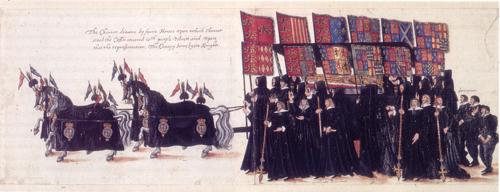 The Chariot drawne by foure Horses upon which Charret
stood the Coffin covered with purple Velvett and upon
that the representation, The Canapy borne by six Knights